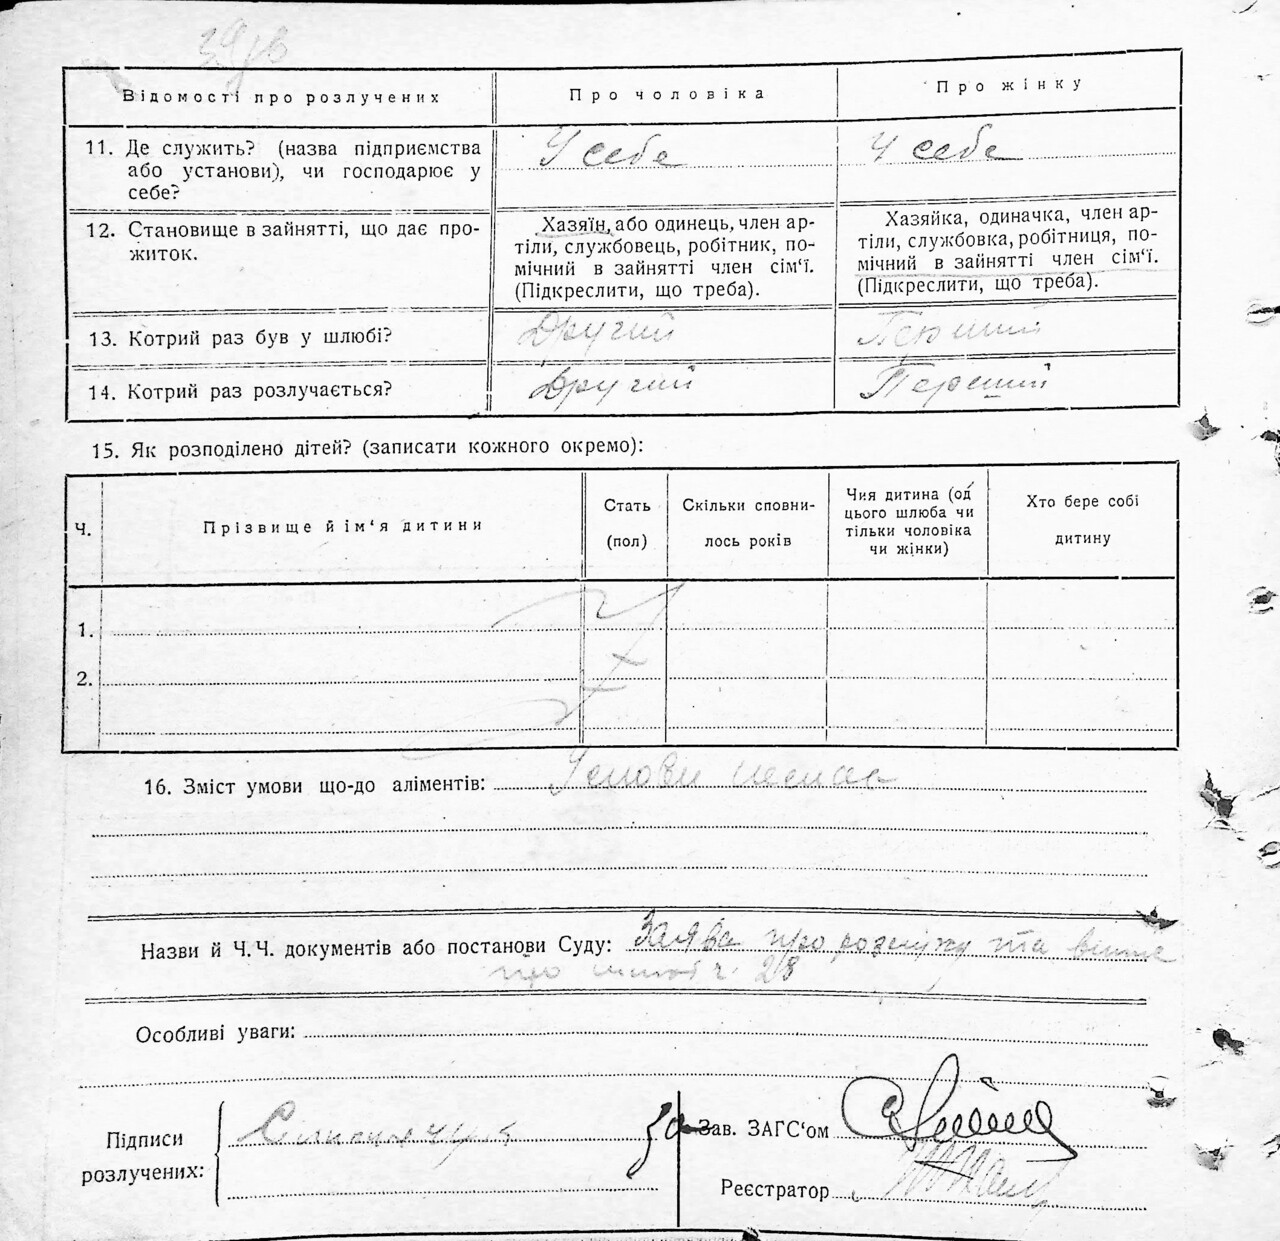 39зв
Відомості про розлучених
Про чоловіка
Про жінку
11. Де служить? (назва підприємства
або установи), чи господарює у
себе?
У себе
У себе
12. Становище в зайнятті, що дає про-
житок.
Хазяїн, або одинець, член ар-
тіли, службовець, робітник, по-
мічний в зайнятті член сім‘ї.
(Підкреслити, що треба).
Хазяйка, одиначка, член ар-
тіли, службовка, робітниця, по-
мічний в зайнятті член сім‘ї.
(Підкреслити, що треба).
13. Котрий раз був у шлюбі?
Другий
Перший
14. Котрий раз розлучається?
Другий
Перший
15. Як розподілено дітей? (записати кожного окремо):
Ч.
Прізвище й ім‘я дитини
Стать
(пол)
Скільки сповни-
лось років
Чия дитина (од
цього шлюба чи
тільки чоловіка
чи жінки)
Хто бере собі
дитину
1.
2.
16. Зміст умови що-до аліментів: Умови немає
Назви й Ч. Ч. документів або постанови Суду: Заява про розлуку та
про ч. 28
Особливі уваги:
Підписи
розлучених:
Зав. ЗАГС‘ом
Реєстратор